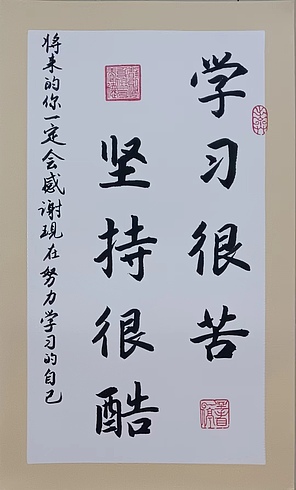 学习很苦
坚持很酷
将来的你一定会感谢现在努力学习的自己